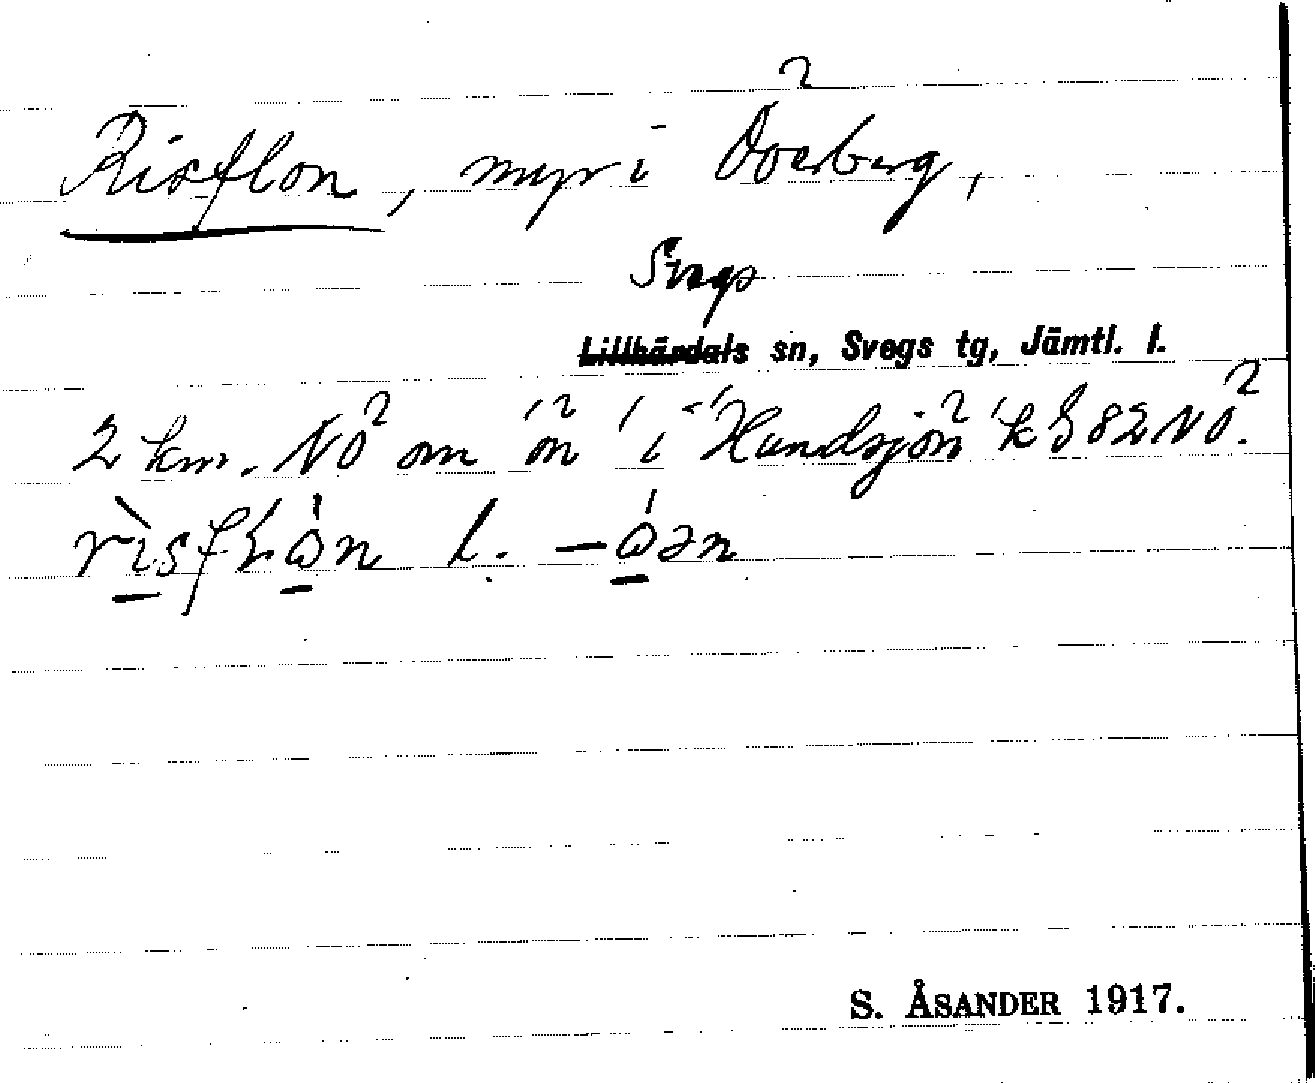 Risflon, myr i Överberg,
Svegs
Lillhärdals sn, Svegs tg, Jämtl. l.
2 km. NÖ om ön i Hundsjön k § 82 NÖ.
l.
S. ÅSANDER 1917.